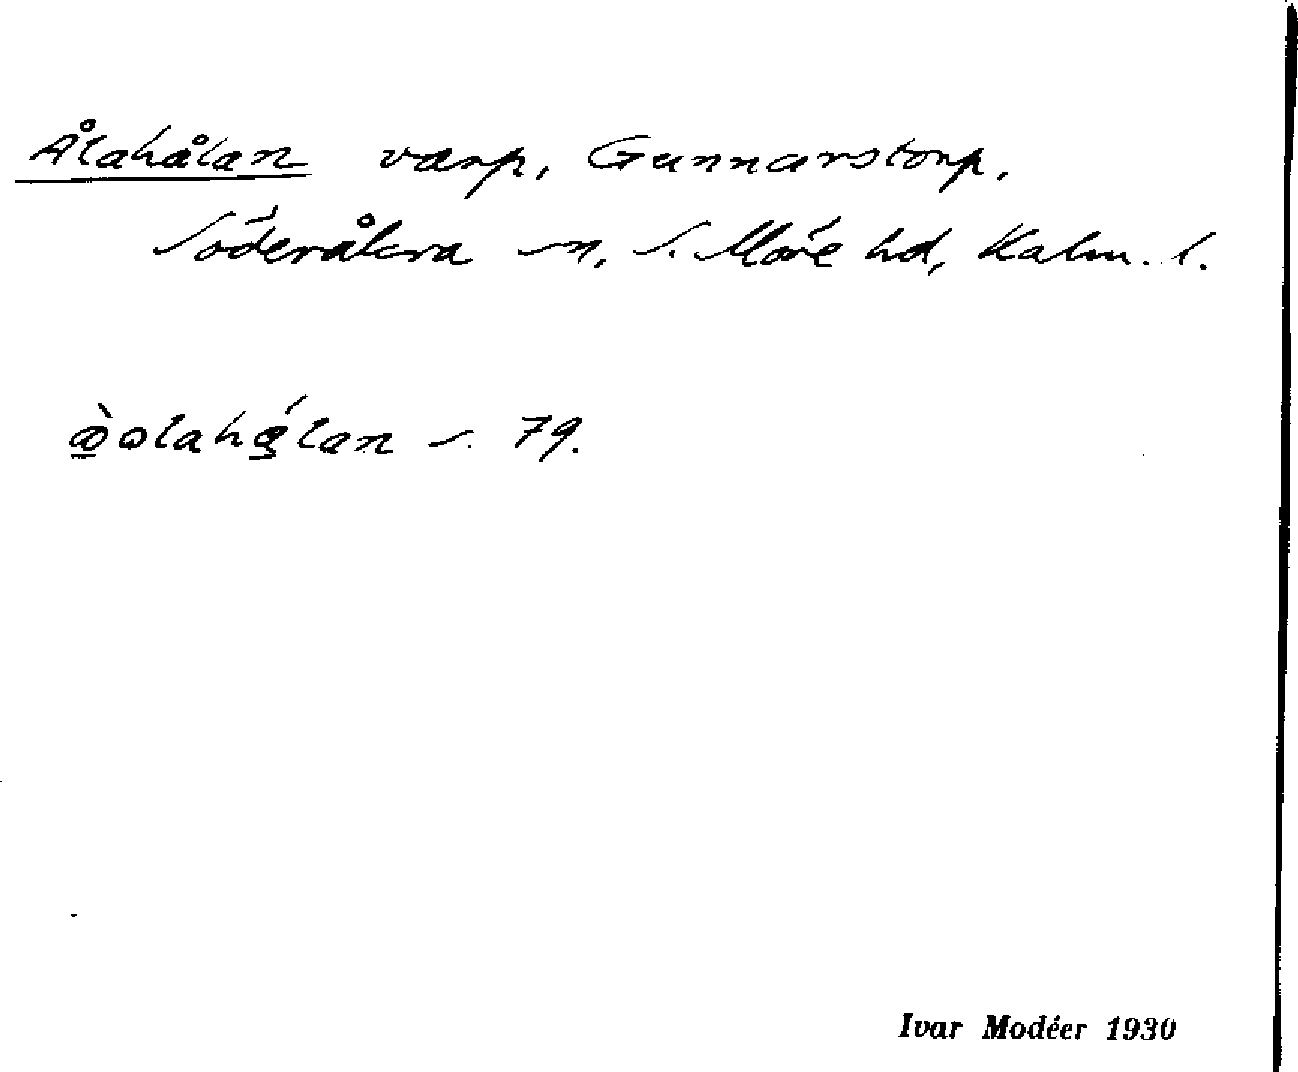 Ålahålan varp, Gunnarstorp,
Söderåkra sn, S. Möre hd, Kalm. l.
s. 79.
Ivar Modéer 1930